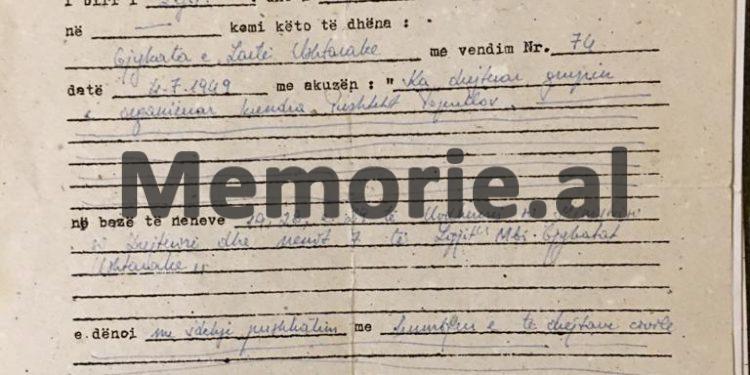 i biri i
në — kemi këto të dhëna :
Gjykata e Lartë Ushtarake me vendim Nr. 74
datë 4-7-1949 me akuzën : "Ka drejtuar grupin
e organizuar kundra Pushtetit Popullor.
Memorie.al
në bazë të neneve
dhe nenit 7 të Ligjit Mbi Gjykatat
Ushtarake"
e dënoi me vdekje pushkatim me humbjen e të drejtave civile